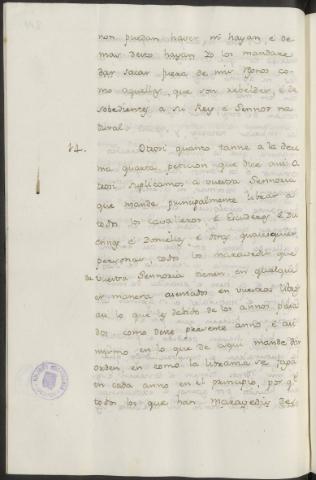 non puedan haver, ni hayan, e de
mas desto hayan Yo los mandare
dar sacar fuera de mis regnos co
mo aquellos, que son rebeldes, e de
sobedientes a su Rey e Sennor na
tural.
14. Otrosi quanto tanne a la deci
ma quarta peticion que dice ansi: O
trosi suplicamos a vuestra Sennoria
que mande principalmente librar a
todos los Cavalleros e Escuderos e Du
e Doncellas, e otras qualesquier
personas, todos los maravedis que
de vuestra Sennoria tienen en qualqui
er manera asentados en vuestros libros
asi lo que es debido de los annos pasa
dos como deste presente anno, e asi
mismo en lo que de aqui mande dar
orden en como la libranza se faga
en cada anno en el principio, por q.e
todos los que han maravedis de